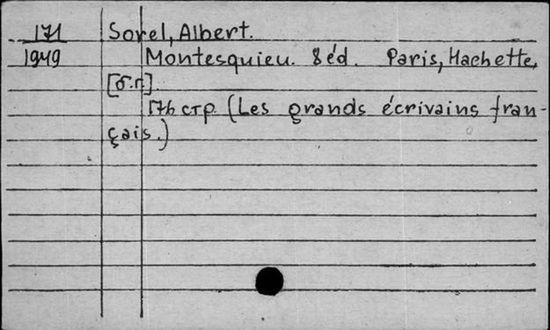 171 Sorel, Albert.
1949 Montesquieu. 8 éd. Paris, Hachette,
[б.г.]
176 стр. (Les grands écrivains fran-
çais.)